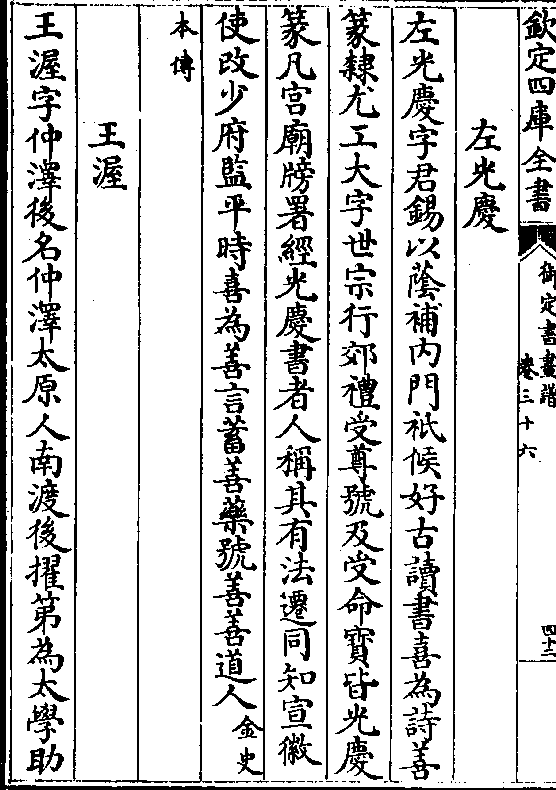 欽定四庫全書
御定書畫譜
卷三十六
四十三
左光慶
左光慶字君錫以蔭補内門祇候好古讀書喜為詩善
篆隸尤工大字世宗行郊禮受尊號及受命寶皆光慶
篆凡宮廟牓署經光慶書者人稱其有法遷同知宣徽
使改少府監平時喜為善言蓄善藥號善善道人金史
本傳
王渥
王渥字仲澤後名仲澤太原人南渡後擢第為太學助